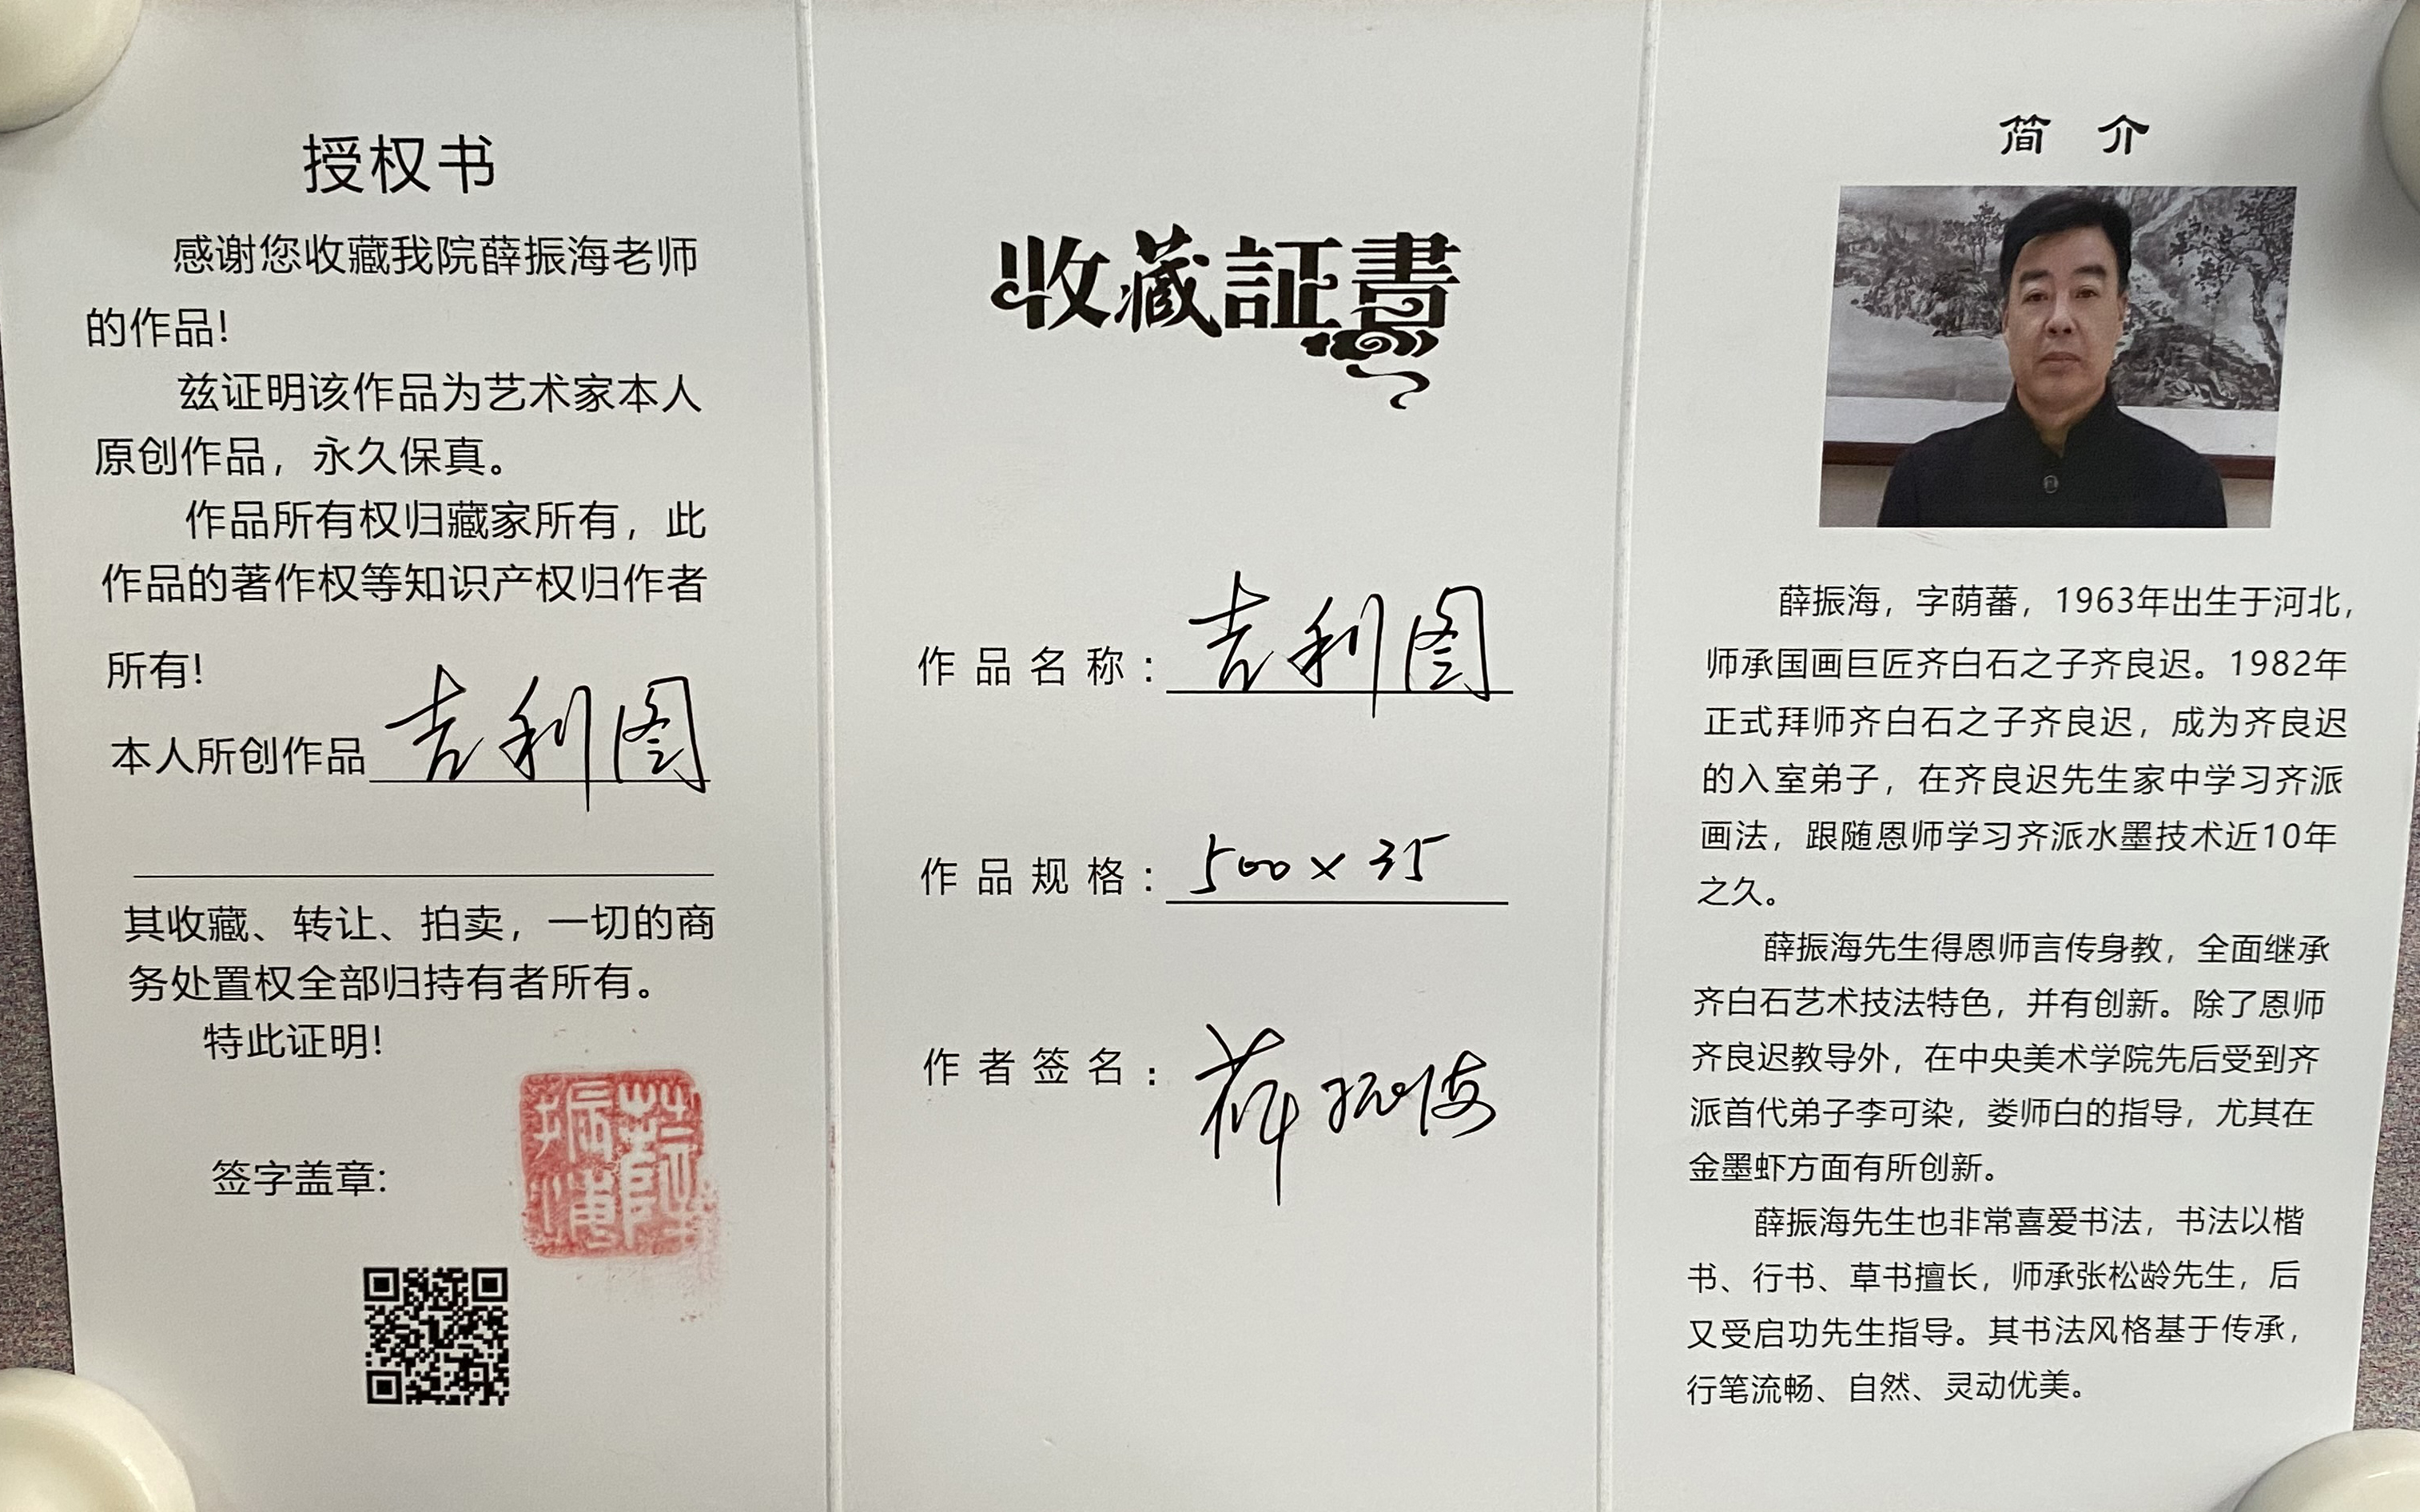 授权书
感谢您收藏我院薛振海老师
的作品！
兹证明该作品为艺术家本人
原创作品，永久保真。
作品所有权归藏家所有，此
作品的著作权等知识产权归作者
所有！
本人所创作品吉利图
其收藏、转让、拍卖，一切的商
务处置权全部归持有者所有。
特此证明！
签字盖章:
收藏証書
作品名称：吉利图
作品规格：500×35
作者签名：薛振海
简介
薛振海，字荫蕃，1963年出生于河北，
师承国画巨匠齐白石之子齐良迟。1982年
正式拜师齐白石之子齐良迟，成为齐良迟
的入室弟子，在齐良迟先生家中学习齐派
画法，跟随恩师学习齐派水墨技术近10年
之久。
薛振海先生得恩师言传身教，全面继承
齐白石艺术技法特色，并有创新。除了恩师
齐良迟教导外，在中央美术学院先后受到齐
派首代弟子李可染，娄师白的指导，尤其在
金墨虾方面有所创新。
薛振海先生也非常喜爱书法，书法以楷
书、行书、草书擅长，师承张松龄先生，后
又受启功先生指导。其书法风格基于传承，
行笔流畅、自然、灵动优美。